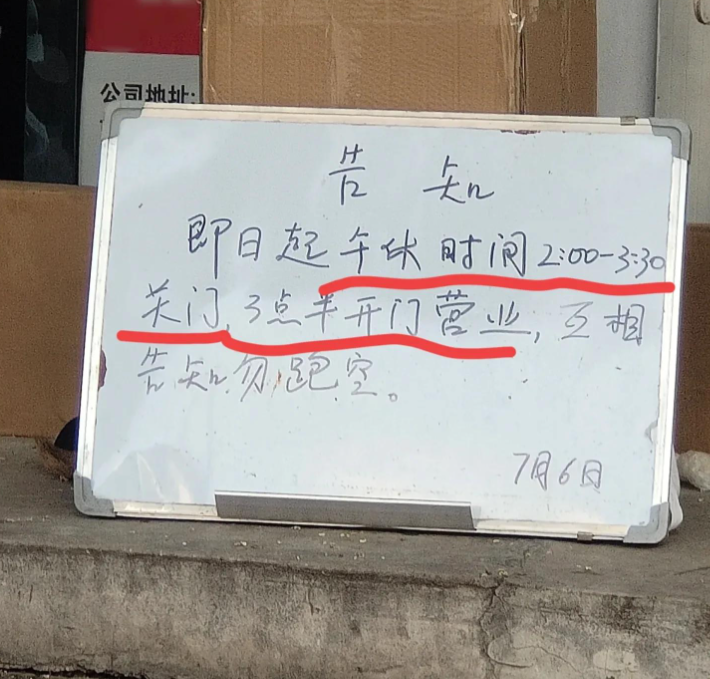 公司地址:
告 知
即日起午休时间2:00-3:30
关门,3点半开门营业,互相
告知勿跑空。
7月6日